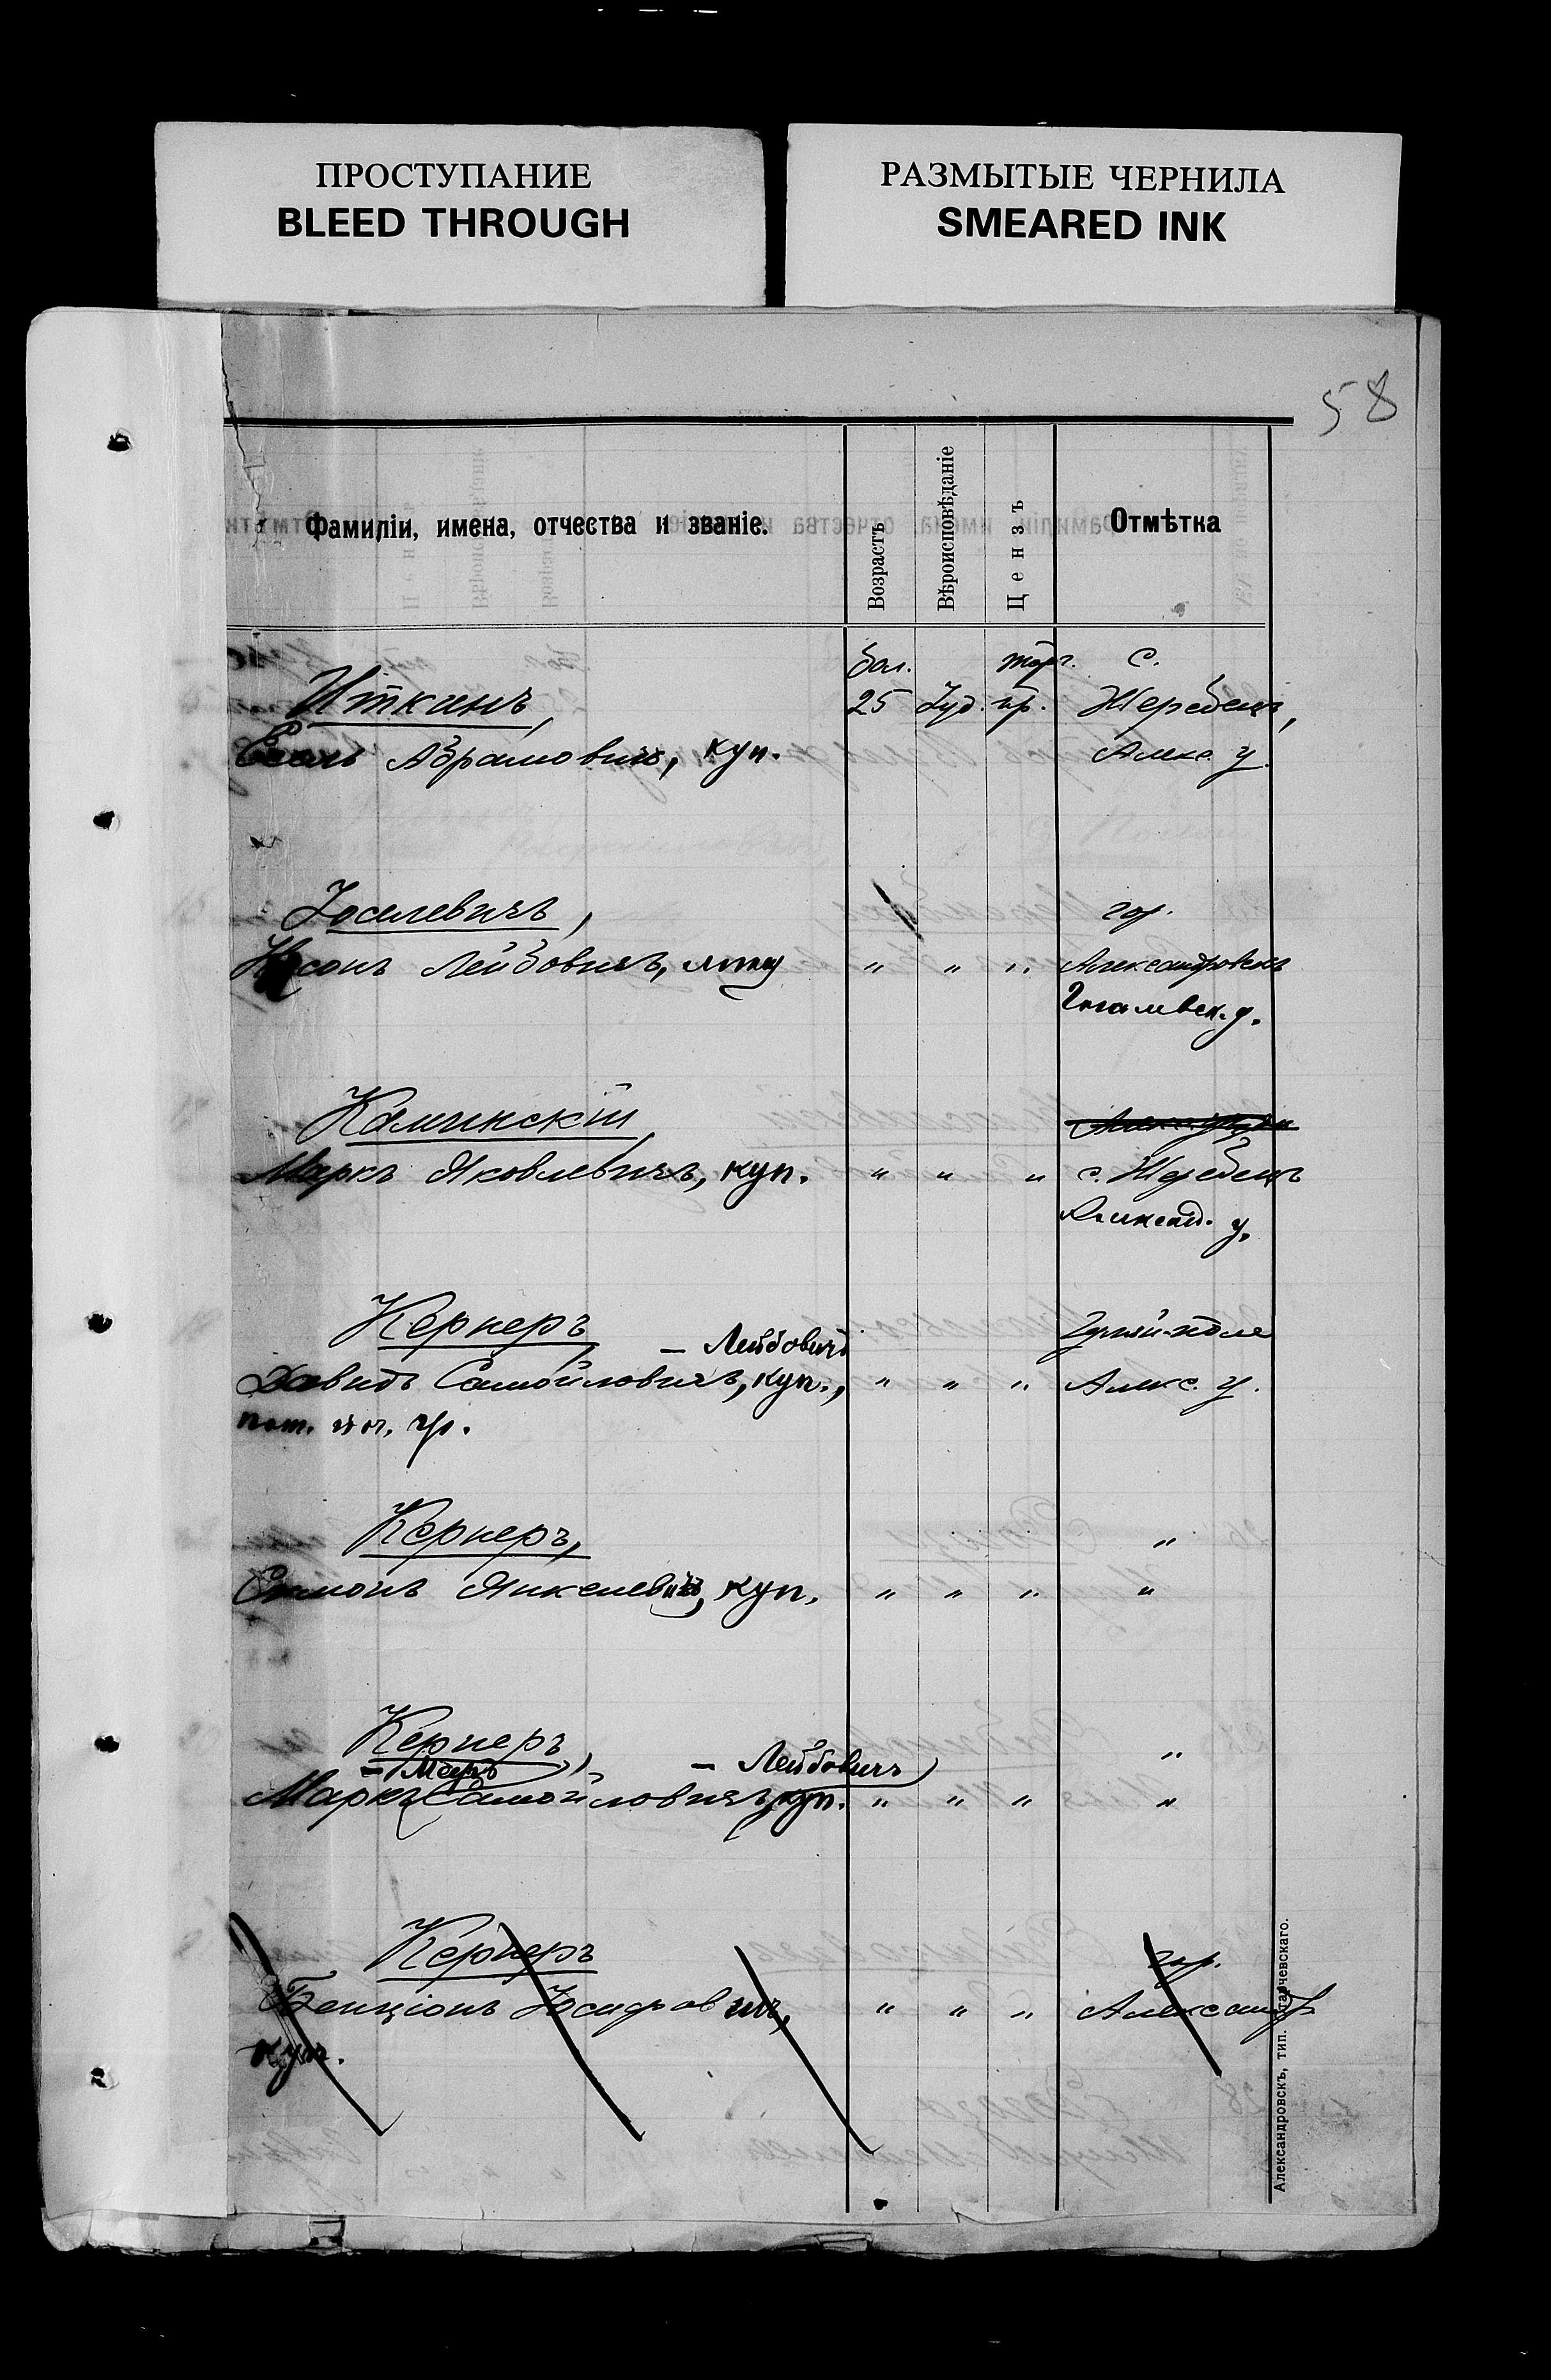 ПРОСТУПАНИЕ
BLEED THROUGH
РАЗМЫТЫЕ ЧЕРНИЛА
SMEARED INK
58
Фамиліи, имена, отчества и званіе.
Возрастъ
Вѣроисповѣданіе
Цензъ
Отмѣтка
бол. торг. с.
Иткинъ, 25 Іуд. пр. Жеребецъ,
Абрамовичъ, куп. Алекс. у.
Іоселевичъ, гор.
Лейбовичъ, " " " Александровскъ
Каминскій
Маркъ Яковлевичъ, куп. " " " с. Жеребецъ
Александ. у.
Кернеръ, Гуляй-поле
– Лейбовичъ
Давидъ Самойловичъ, куп., " " " Алекс. у.
пот. поч. гр.
Кернеръ, "
Симонъ Янкелевичъ, куп. " " " "
Кернеръ, "
– Меръ – Лейбовичъ
Маркъ Самойловичъ, куп. " " " "
Кернеръ гор.
Бенціонъ " " " Александр.
куп.
Александровскъ, тип.